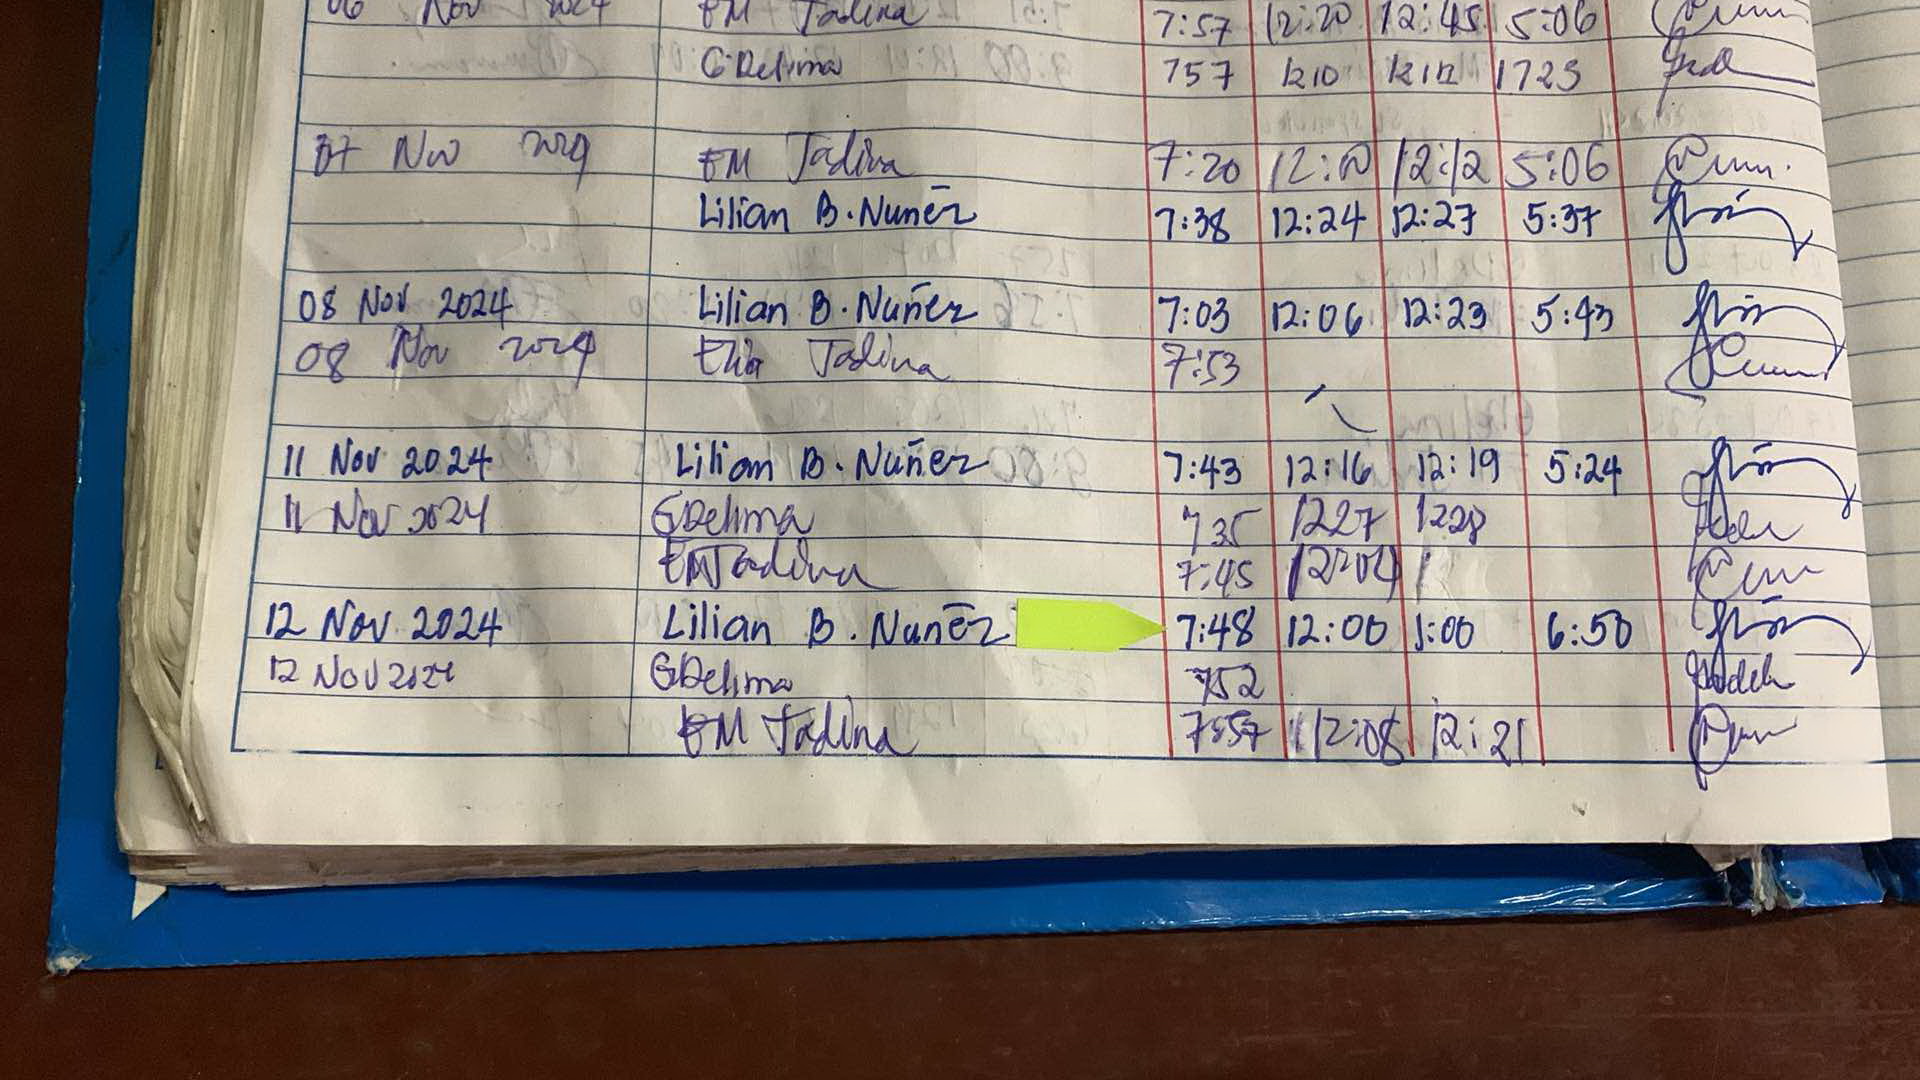 06 Nov 2024 EM Tadina 7:57 12:20 12:45 5:06
GDelima 757 1210 1212 1723
07 Nov 2024 EM Tadina 7:20 12:10 12:12 5:06
Lilian B. Nuñez 7:38 12:24 12:27 5:37
08 Nov 2024 Lilian B. Nuñez 7:03 12:06 12:23 5:43
08 Nov 2024 Tadina 7:53
11 Nov 2024 Lilian B. Nuñez 7:43 12:16 12:19 5:24
11 Nov 2024 GDelima 735 1227 1228
EMTadina 7:45 12:04
12 Nov 2024 Lilian B. Nuñez 7:48 12:00 1:00 6:50
12 Nov 2024 GDelima 752
EM Tadina 7:57 12:08 12:21